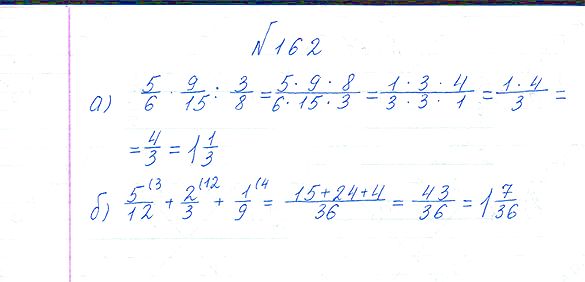 №162
а) 5/6 · 9/15 : 3/8 = 5·9·8/6·15·3 = 1·3·4/3·3·1 = 1·4/3 =
= 4/3 = 1 1/3
б) 5/12 (3 + 2/3 (12 + 1/9 (4 = 15+24+4/36 = 43/36 = 1 7/36